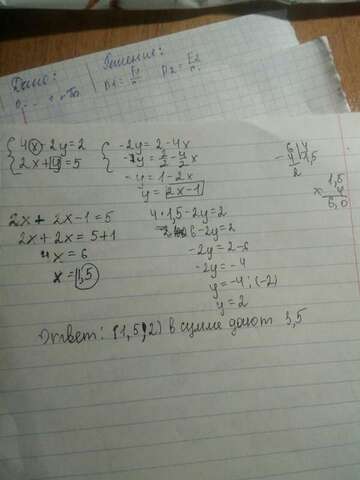 Дано:
Решение:
{4x - 2y = 2
{2x + y = 5
-2y = 2 - 4x
-y = 2/2 - 4/2x
-y = 1 - 2x
y = 2x-1
6 4
4 1,5
2
1,5
x 4
6,0
2x + 2x - 1 = 5
2x + 2x = 5 + 1
4x = 6
x = 1,5
4 · 1,5 - 2y = 2
6 - 2y = 2
-2y = 2 - 6
-2y = -4
y = -4 : (-2)
y = 2
Ответ: (1,5;2) в сумме дают 3,5